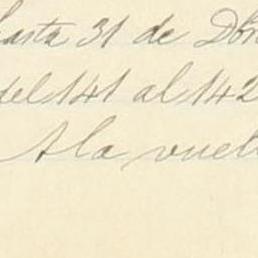 hasta 31 de Dbre
del 141 al 142
A la vuelta